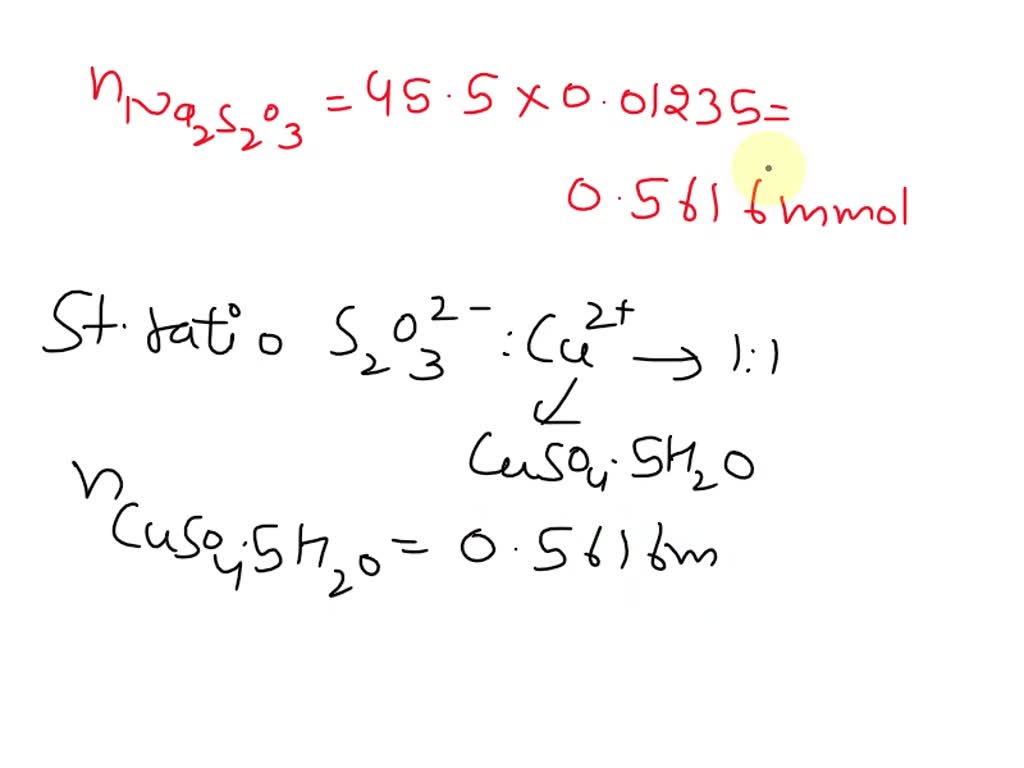 nNa₂S₂O₃ = 45.5 × 0.01235 =
0.5616mmol
St. ratio S₂O₃²⁻ : Cu²⁺ → 1:1
↙
CuSO₄.5H₂O
nCuSO₄.5H₂O = 0.5616m